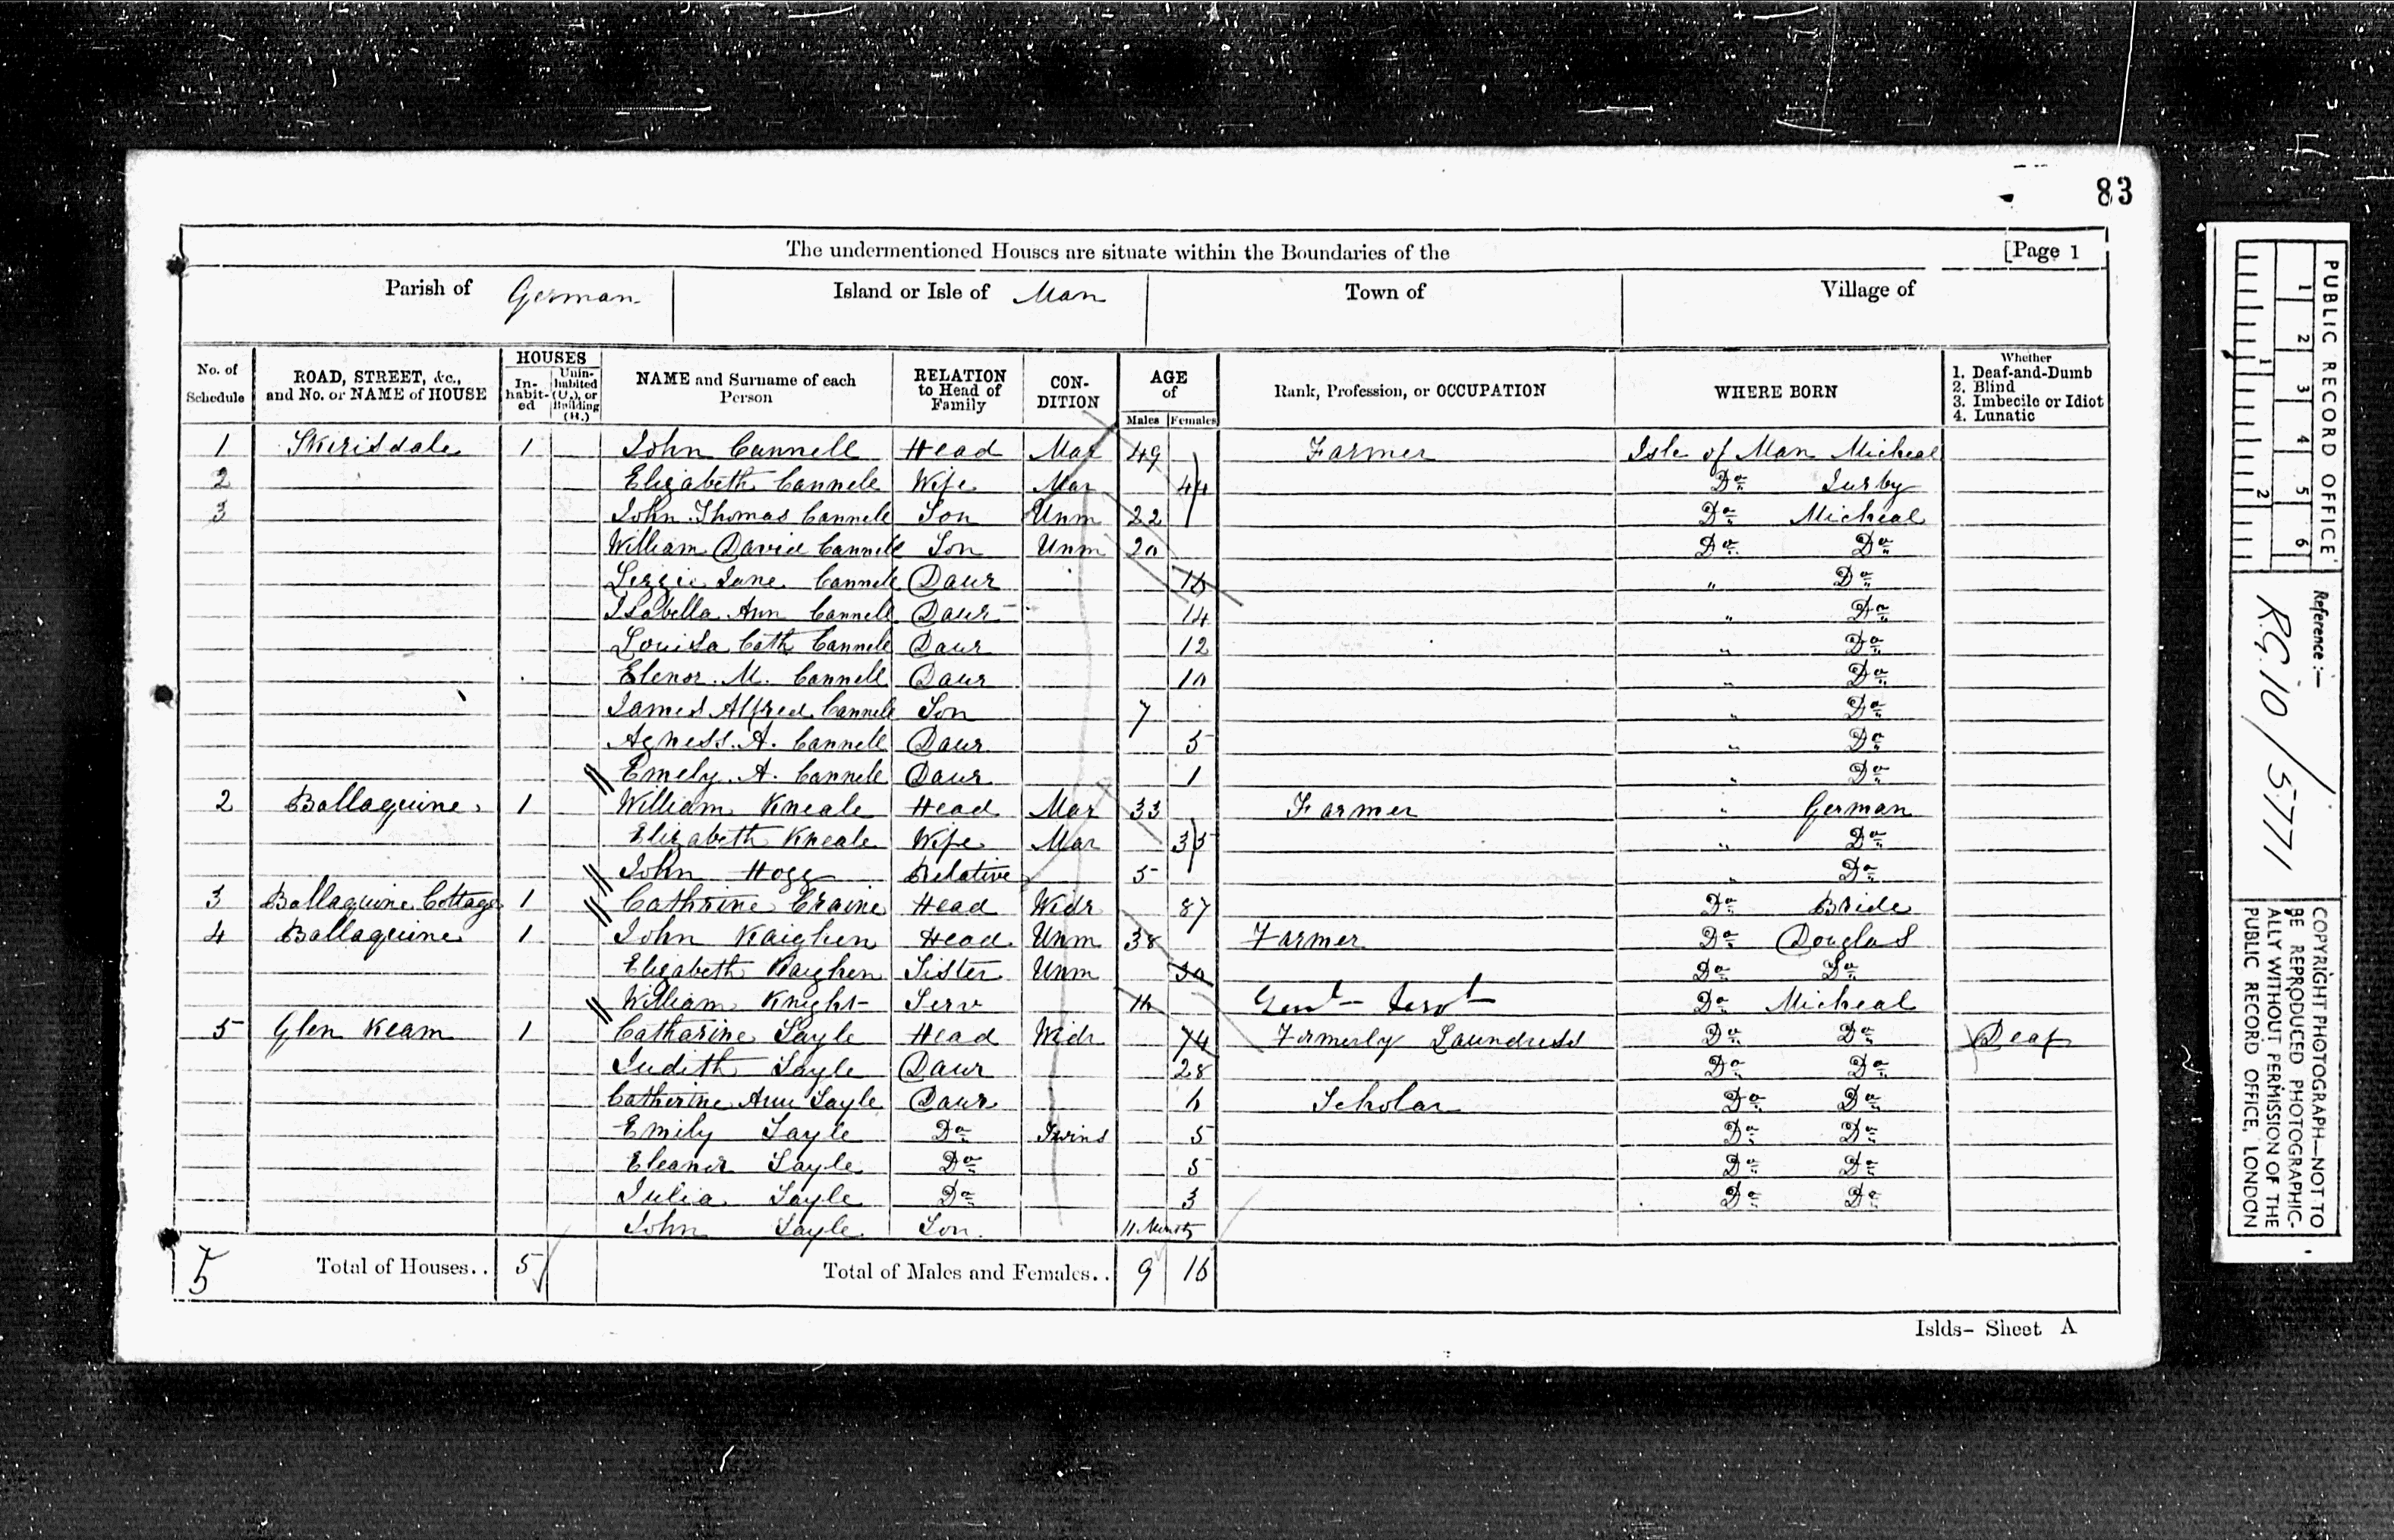 83
The undermentioned Houses are situate within the Boundaries of the [Page 1
Parish of German Island or Isle of Man Town of Village of
No. of Schedule ROAD, STREET, &c., and No. or NAME of HOUSE HOUSES In-habit-ed Unin-habited (U.), or Building (B.) NAME and Surname of each Person RELATION to Head of Family CON-DITION AGE of Males Females Rank, Profession, or OCCUPATION WHERE BORN Whether 1. Deaf-and-Dumb 2. Blind 3. Imbecile or Idiot 4. Lunatic
1 Skerisdale 1 John Cannell Head Mar 49 Farmer Isle of Man Micheal
2 Elizabeth Cannell Wife Mar 44 Do Jurby
3 John Thomas Cannell Son Unm 22 Do Micheal
William David Cannell Son Unm 20 Do Do
Lizzie Jane Cannell Daur 16 " Do
Isabella Ann Cannell Daur 14 " Do
Louisa Cath Cannell Daur 12 " Do
Elenor M. Cannell Daur 10 " Do
James Alfred Cannell Son 7 " Do
Agness A. Cannell Daur 5 " Do
Emely A. Cannell Daur 1 " Do
2 Ballaquine 1 William Kneale Head Mar 33 Farmer " German
Elizabeth Kneale Wife Mar 35 " Do
John Hogg Relative 5 " Do
3 Ballaquine Cottage 1 Cathrine Craine Head Widr 87 Do Bride
4 Ballaquine 1 John Kaighen Head Unm 38 Farmer Do Douglas
Elizabeth Kaighen Sister Unm 30 Do Do
William Knight Serv 16 Genl Servt Do Micheal
5 Glen Keam 1 Catharine Sayle Head Widr 74 Formerly Laundress Do Do Deaf
Judith Sayle Daur 28 Do Do
Catherine Ann Sayle Daur 6 Scholar Do Do
Emily Sayle Do Twins 5 Do Do
Eleanor Sayle Do 5 Do Do
Julia Sayle Do 3 Do Do
John Sayle Son 11 Months
5 Total of Houses.. 5 Total of Males and Females.. 9 16
Islds- Sheet A
PUBLIC RECORD OFFICE
1 2 3 4 5 6
1 2
Reference :-
R.G. 10/5771
COPYRIGHT PHOTOGRAPH—NOT TO
BE REPRODUCED PHOTOGRAPHIC-
ALLY WITHOUT PERMISSION OF THE
PUBLIC RECORD OFFICE, LONDON